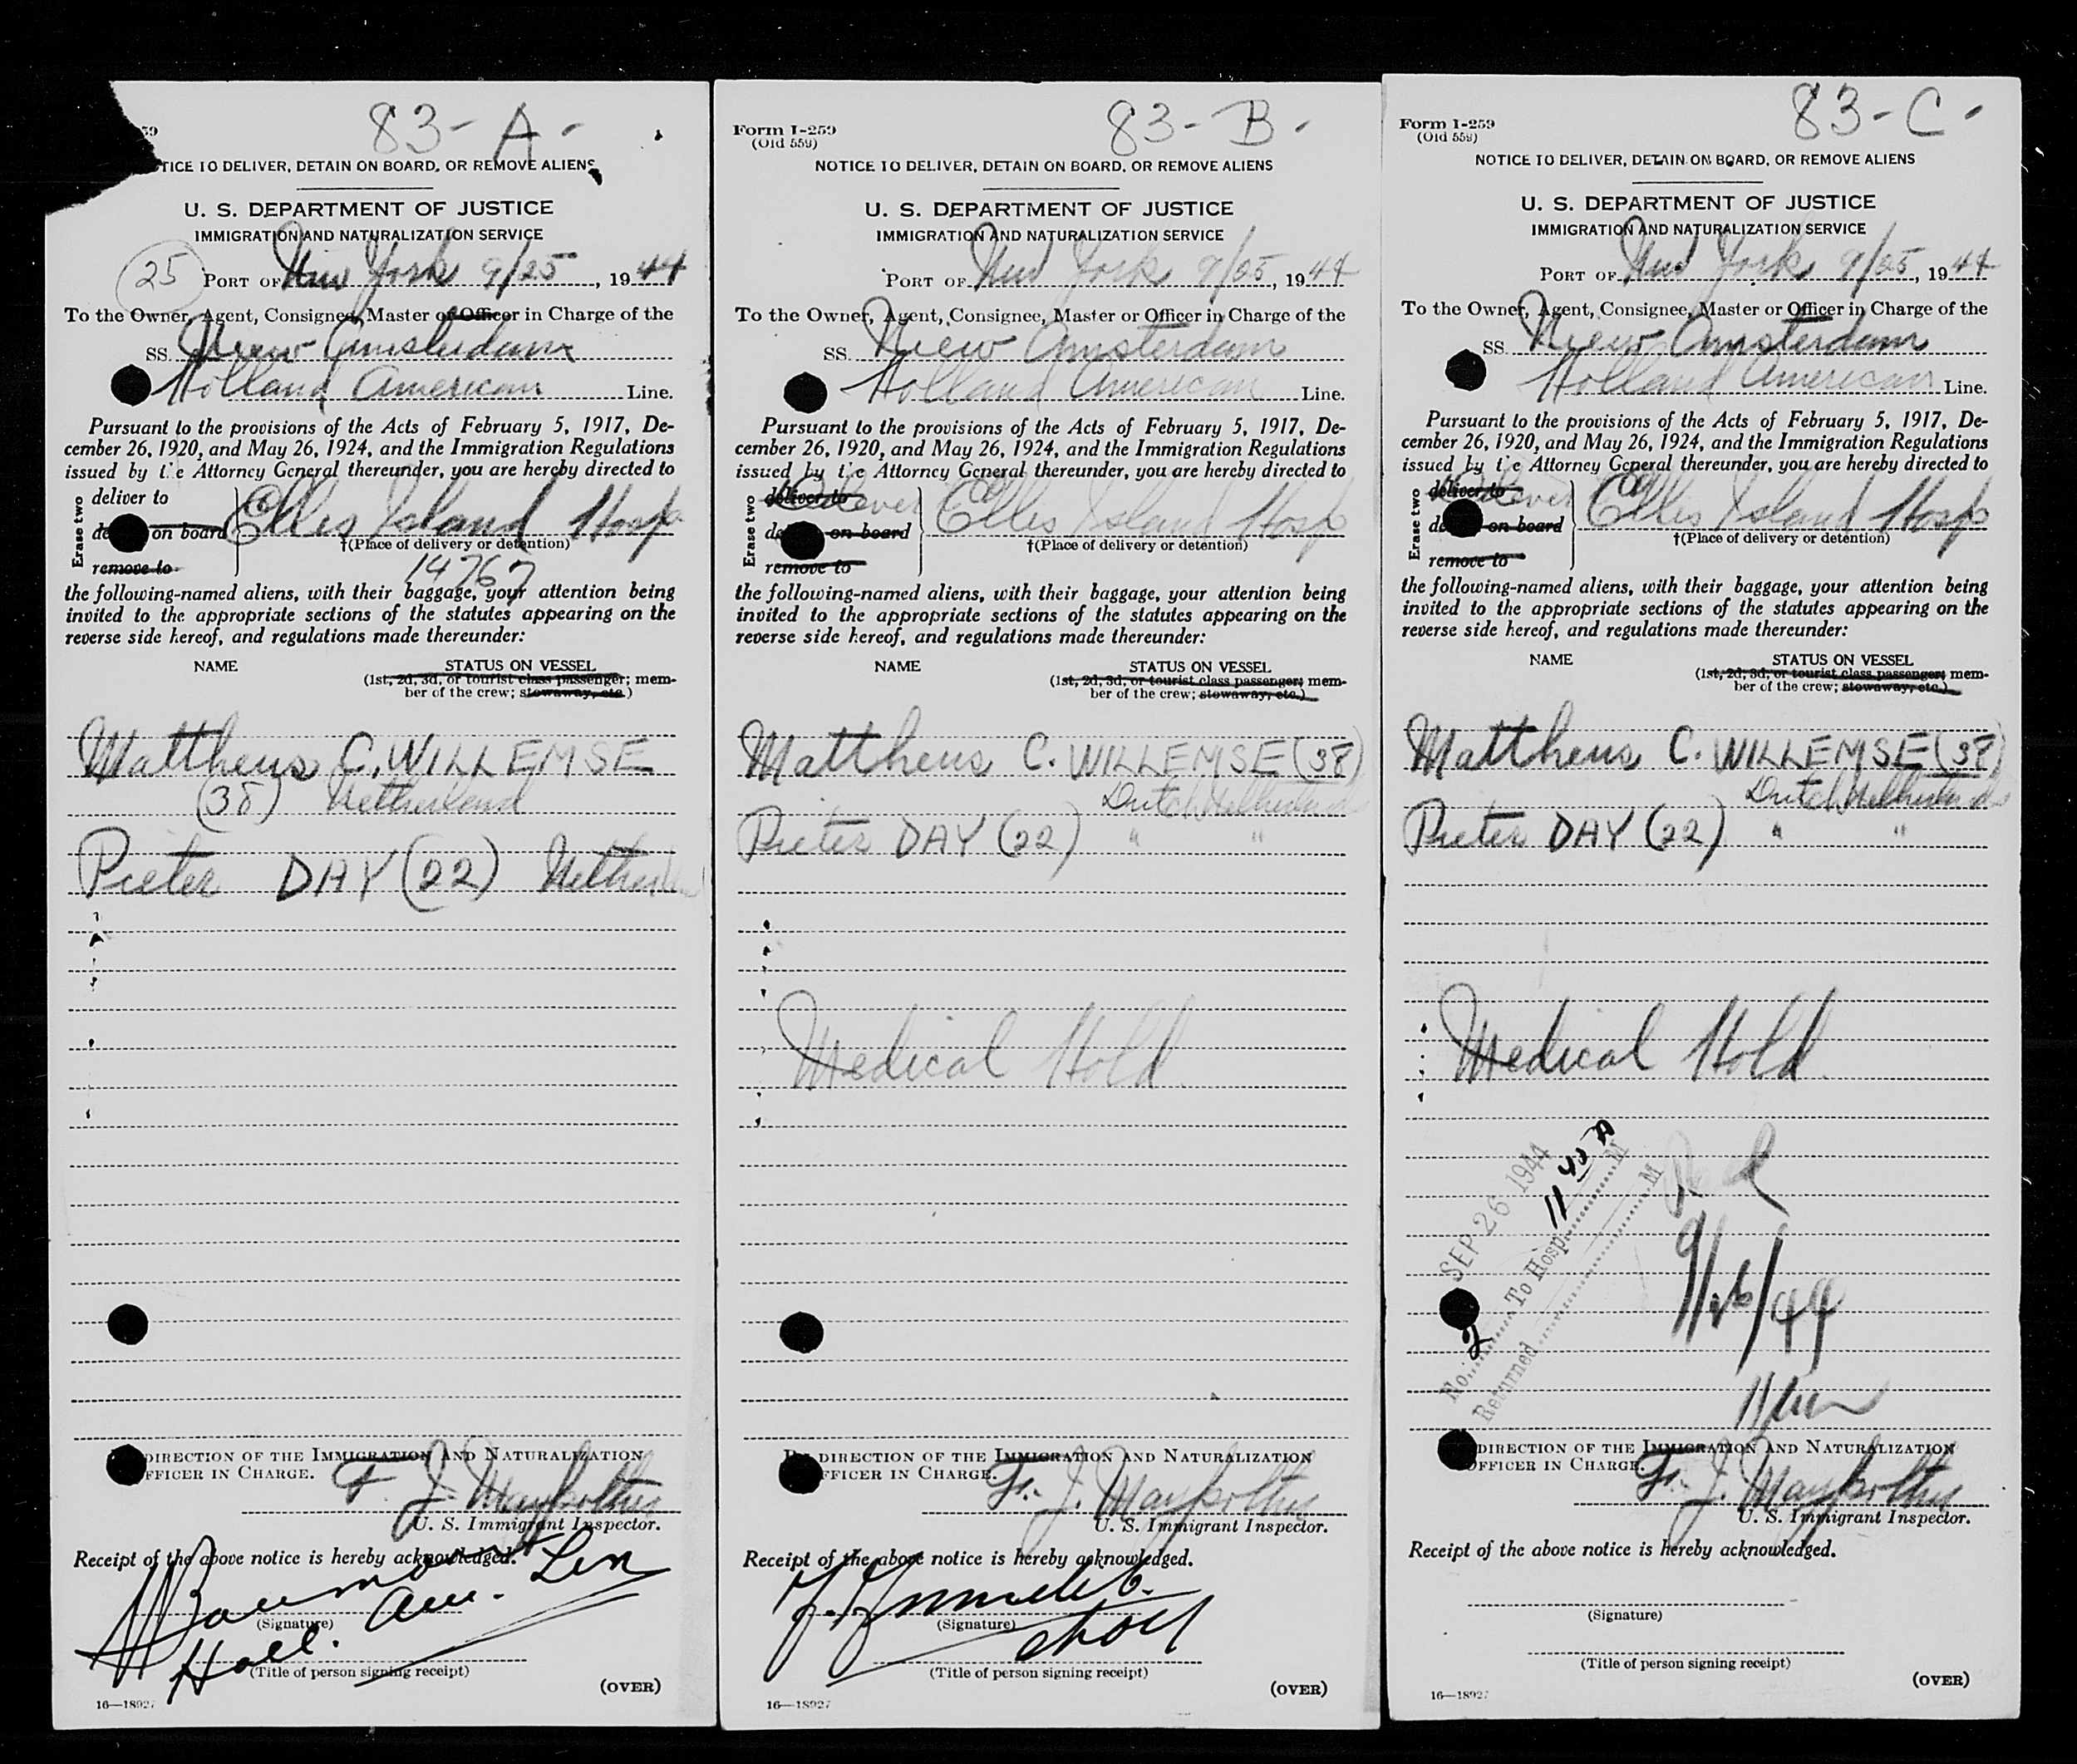 83-A-
TICE TO DELIVER, DETAIN ON BOARD, OR REMOVE ALIENS
U. S. DEPARTMENT OF JUSTICE
IMMIGRATION AND NATURALIZATION SERVICE
25
PORT OF New York 9/25, 1944
To the Owner, Agent, Consignee, Master or Officer in Charge of the
SS. Niew Amsterdam
Holland American Line.
Pursuant to the provisions of the Acts of February 5, 1917, De-
cember 26, 1920, and May 26, 1924, and the Immigration Regulations
issued by the Attorney General thereunder, you are hereby directed to
Erase two
deliver to
on board
remove to
Ellis Island Hosp
†(Place of delivery or detention)
14767
the following-named aliens, with their baggage, your attention being
invited to the appropriate sections of the statutes appearing on the
reverse side hereof, and regulations made thereunder:
NAME STATUS ON VESSEL
(1st, 2d, 3d, or tourist class passenger; mem-
ber of the crew; stowaway, etc.)
Mattheus C. WILLEMSE
(38) Netherland
Pieter DAY (22)
DIRECTION OF THE IMMIGRATION AND NATURALIZATION
FFICER IN CHARGE.
F. J.
U. S. Immigrant Inspector.
Receipt of the above notice is hereby acknowledged.
(Signature)
Holl. Am. Lin
(Title of person signing receipt)
(OVER)
16—18927
Form I-259
(Old 559)
83-B-
NOTICE TO DELIVER, DETAIN ON BOARD, OR REMOVE ALIENS
U. S. DEPARTMENT OF JUSTICE
IMMIGRATION AND NATURALIZATION SERVICE
PORT OF New York 9/25, 1944
To the Owner, Agent, Consignee, Master or Officer in Charge of the
SS. Niew Amsterdam
Holland American Line.
Pursuant to the provisions of the Acts of February 5, 1917, De-
cember 26, 1920, and May 26, 1924, and the Immigration Regulations
issued by the Attorney General thereunder, you are hereby directed to
Erase two
deliver to
on board
remove to
Ellis Island Hosp
†(Place of delivery or detention)
the following-named aliens, with their baggage, your attention being
invited to the appropriate sections of the statutes appearing on the
reverse side hereof, and regulations made thereunder:
NAME STATUS ON VESSEL
(1st, 2d, 3d, or tourist class passenger; mem-
ber of the crew; stowaway, etc.)
Mattheus C. WILLEMSE (38)
Dutch Netherlands
Pieter DAY (22) " "
Medical Hold
DIRECTION OF THE IMMIGRATION AND NATURALIZATION
FFICER IN CHARGE.
Fr. J.
U. S. Immigrant Inspector.
Receipt of the above notice is hereby acknowledged.
(Signature)
(Title of person signing receipt)
(OVER)
16—18927
Form I-259
(Old 559)
83-C-
NOTICE TO DELIVER, DETAIN ON BOARD, OR REMOVE ALIENS
U. S. DEPARTMENT OF JUSTICE
IMMIGRATION AND NATURALIZATION SERVICE
PORT OF New York 9/25, 1944
To the Owner, Agent, Consignee, Master or Officer in Charge of the
SS. Niew Amsterdam
Holland American Line.
Pursuant to the provisions of the Acts of February 5, 1917, De-
cember 26, 1920, and May 26, 1924, and the Immigration Regulations
issued by the Attorney General thereunder, you are hereby directed to
Erase two
deliver to
on board
remove to
Ellis Island Hosp
†(Place of delivery or detention)
the following-named aliens, with their baggage, your attention being
invited to the appropriate sections of the statutes appearing on the
reverse side hereof, and regulations made thereunder:
NAME STATUS ON VESSEL
(1st, 2d, 3d, or tourist class passenger; mem-
ber of the crew; stowaway, etc.)
Mattheus C. WILLEMSE (38)
Dutch Netherlands
Pieter DAY (22) " "
Medical Hold
SEP 26 1944
No. 2 To Hosp. 11 40 A M
Returned M
9/26/44
DIRECTION OF THE IMMIGRATION AND NATURALIZATION
OFFICER IN CHARGE.
Fr. J.
U. S. Immigrant Inspector.
Receipt of the above notice is hereby acknowledged.
(Signature)
(Title of person signing receipt)
(OVER)
16—18927